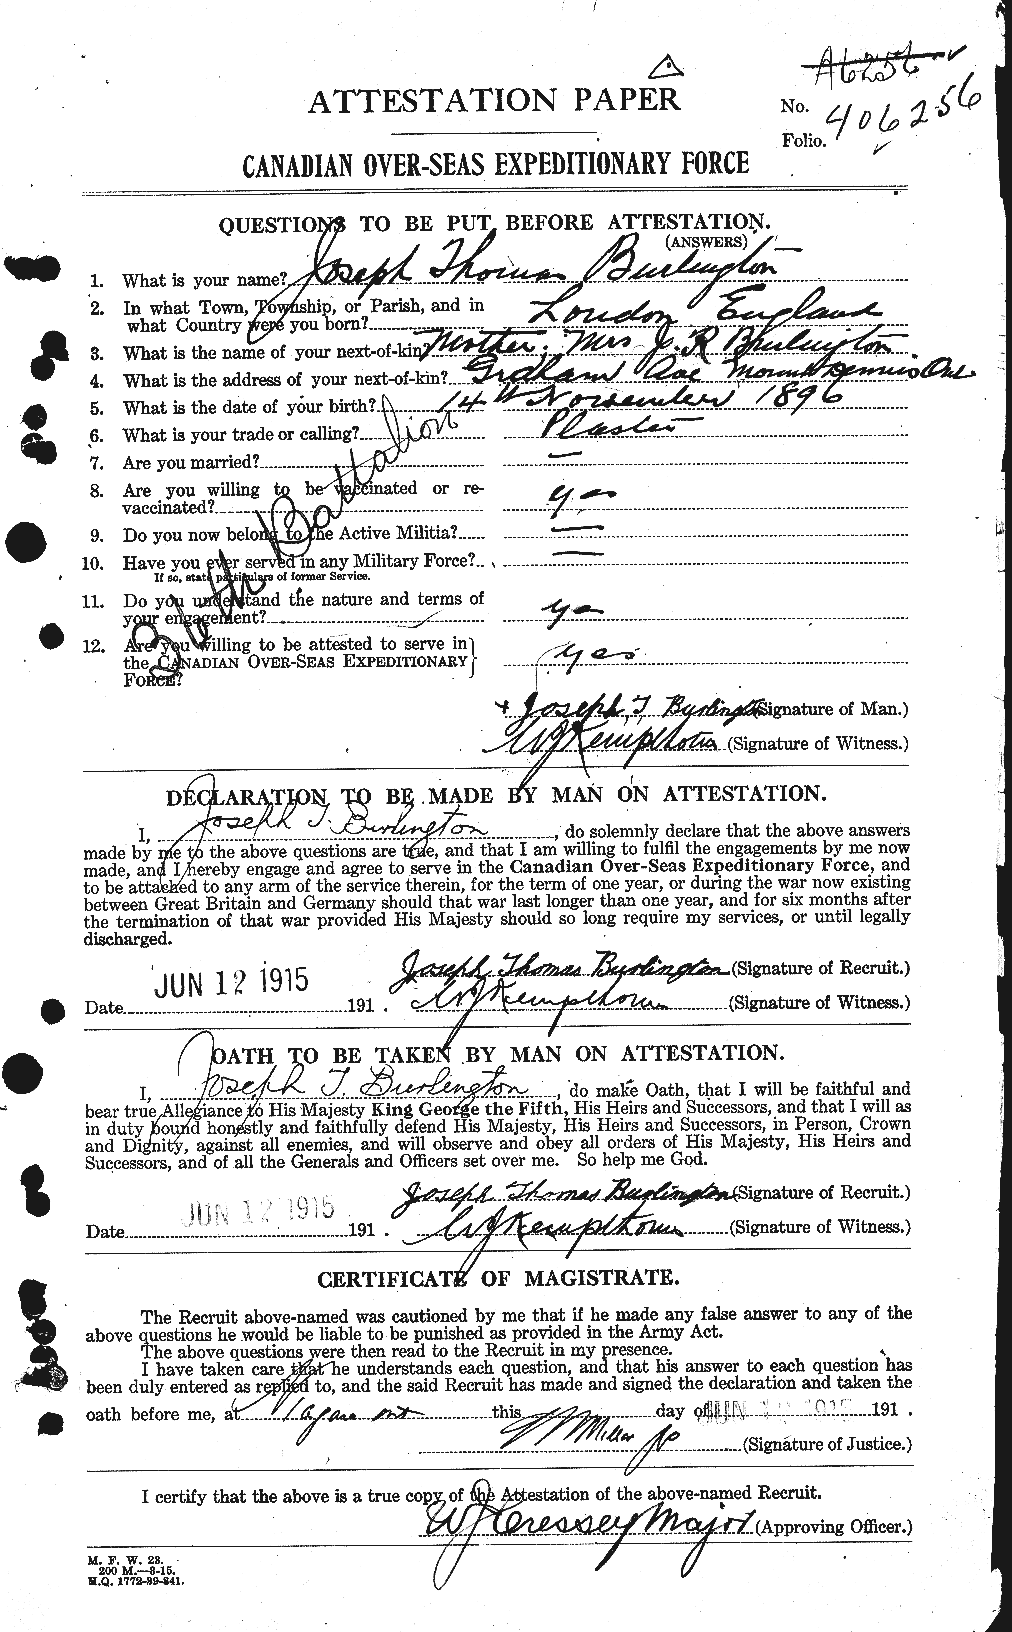 A6256
ATTESTATION PAPER
No. 406256
Folio.
CANADIAN OVER-SEAS EXPEDITIONARY FORCE
QUESTIONS TO BE PUT BEFORE ATTESTATION.
(ANSWERS)
1. What is your name? Joseph Thomas Burlington
2. In what Town, Township, or Parish, and in
what Country were you born? London England
3. What is the name of your next-of-kin? Mother. Mrs J. R Burlington
4. What is the address of your next-of-kin? Graham Ave Mount Dennis Ont.
5. What is the date of your birth? 14th November 1896
6. What is your trade or calling? Plaster
7. Are you married? —
8. Are you willing to be vaccinated or re-
vaccinated? yes
9. Do you now belong to the Active Militia? —
10. Have you ever served in any Military Force? —
If so, state particulars of former Service.
11. Do you understand the nature and terms of
your engagement? yes
12. Are you willing to be attested to serve in
the CANADIAN OVER-SEAS EXPEDITIONARY yes
FORCE?
36th Battalion
+ Joseph. T. Burlington (Signature of Man.)
WJ Kempthorn (Signature of Witness.)
DECLARATION TO BE MADE BY MAN ON ATTESTATION.
I, Joseph T. Burlington, do solemnly declare that the above answers
made by me to the above questions are true, and that I am willing to fulfil the engagements by me now
made, and I hereby engage and agree to serve in the Canadian Over-Seas Expeditionary Force, and
to be attached to any arm of the service therein, for the term of one year, or during the war now existing
between Great Britain and Germany should that war last longer than one year, and for six months after
the termination of that war provided His Majesty should so long require my services, or until legally
discharged.
Joseph Thomas Burlington (Signature of Recruit.)
Date JUN 12 1915 191 . WJ Kempthorn (Signature of Witness.)
OATH TO BE TAKEN BY MAN ON ATTESTATION.
I, Joseph T. Burlington, do make Oath, that I will be faithful and
bear true Allegiance to His Majesty King George the Fifth, His Heirs and Successors, and that I will as
in duty bound honestly and faithfully defend His Majesty, His Heirs and Successors, in Person, Crown
and Dignity, against all enemies, and will observe and obey all orders of His Majesty, His Heirs and
Successors, and of all the Generals and Officers set over me. So help me God.
Joseph Thomas Burlington (Signature of Recruit.)
Date JUN 12 1915 191 . WJ Kempthorn (Signature of Witness.)
CERTIFICATE OF MAGISTRATE.
The Recruit above-named was cautioned by me that if he made any false answer to any of the
above questions he would be liable to be punished as provided in the Army Act.
The above questions were then read to the Recruit in my presence.
I have taken care that he understands each question, and that his answer to each question has
been duly entered as replied to, and the said Recruit has made and signed the declaration and taken the
oath before me, at this day of JUN 12 1915 191 .
Miller JP (Signature of Justice.)
I certify that the above is a true copy of the Attestation of the above-named Recruit.
WJ Cressey Major (Approving Officer.)
M. F. W. 23.
200 M.—3-15.
H.Q. 1772-39-841.